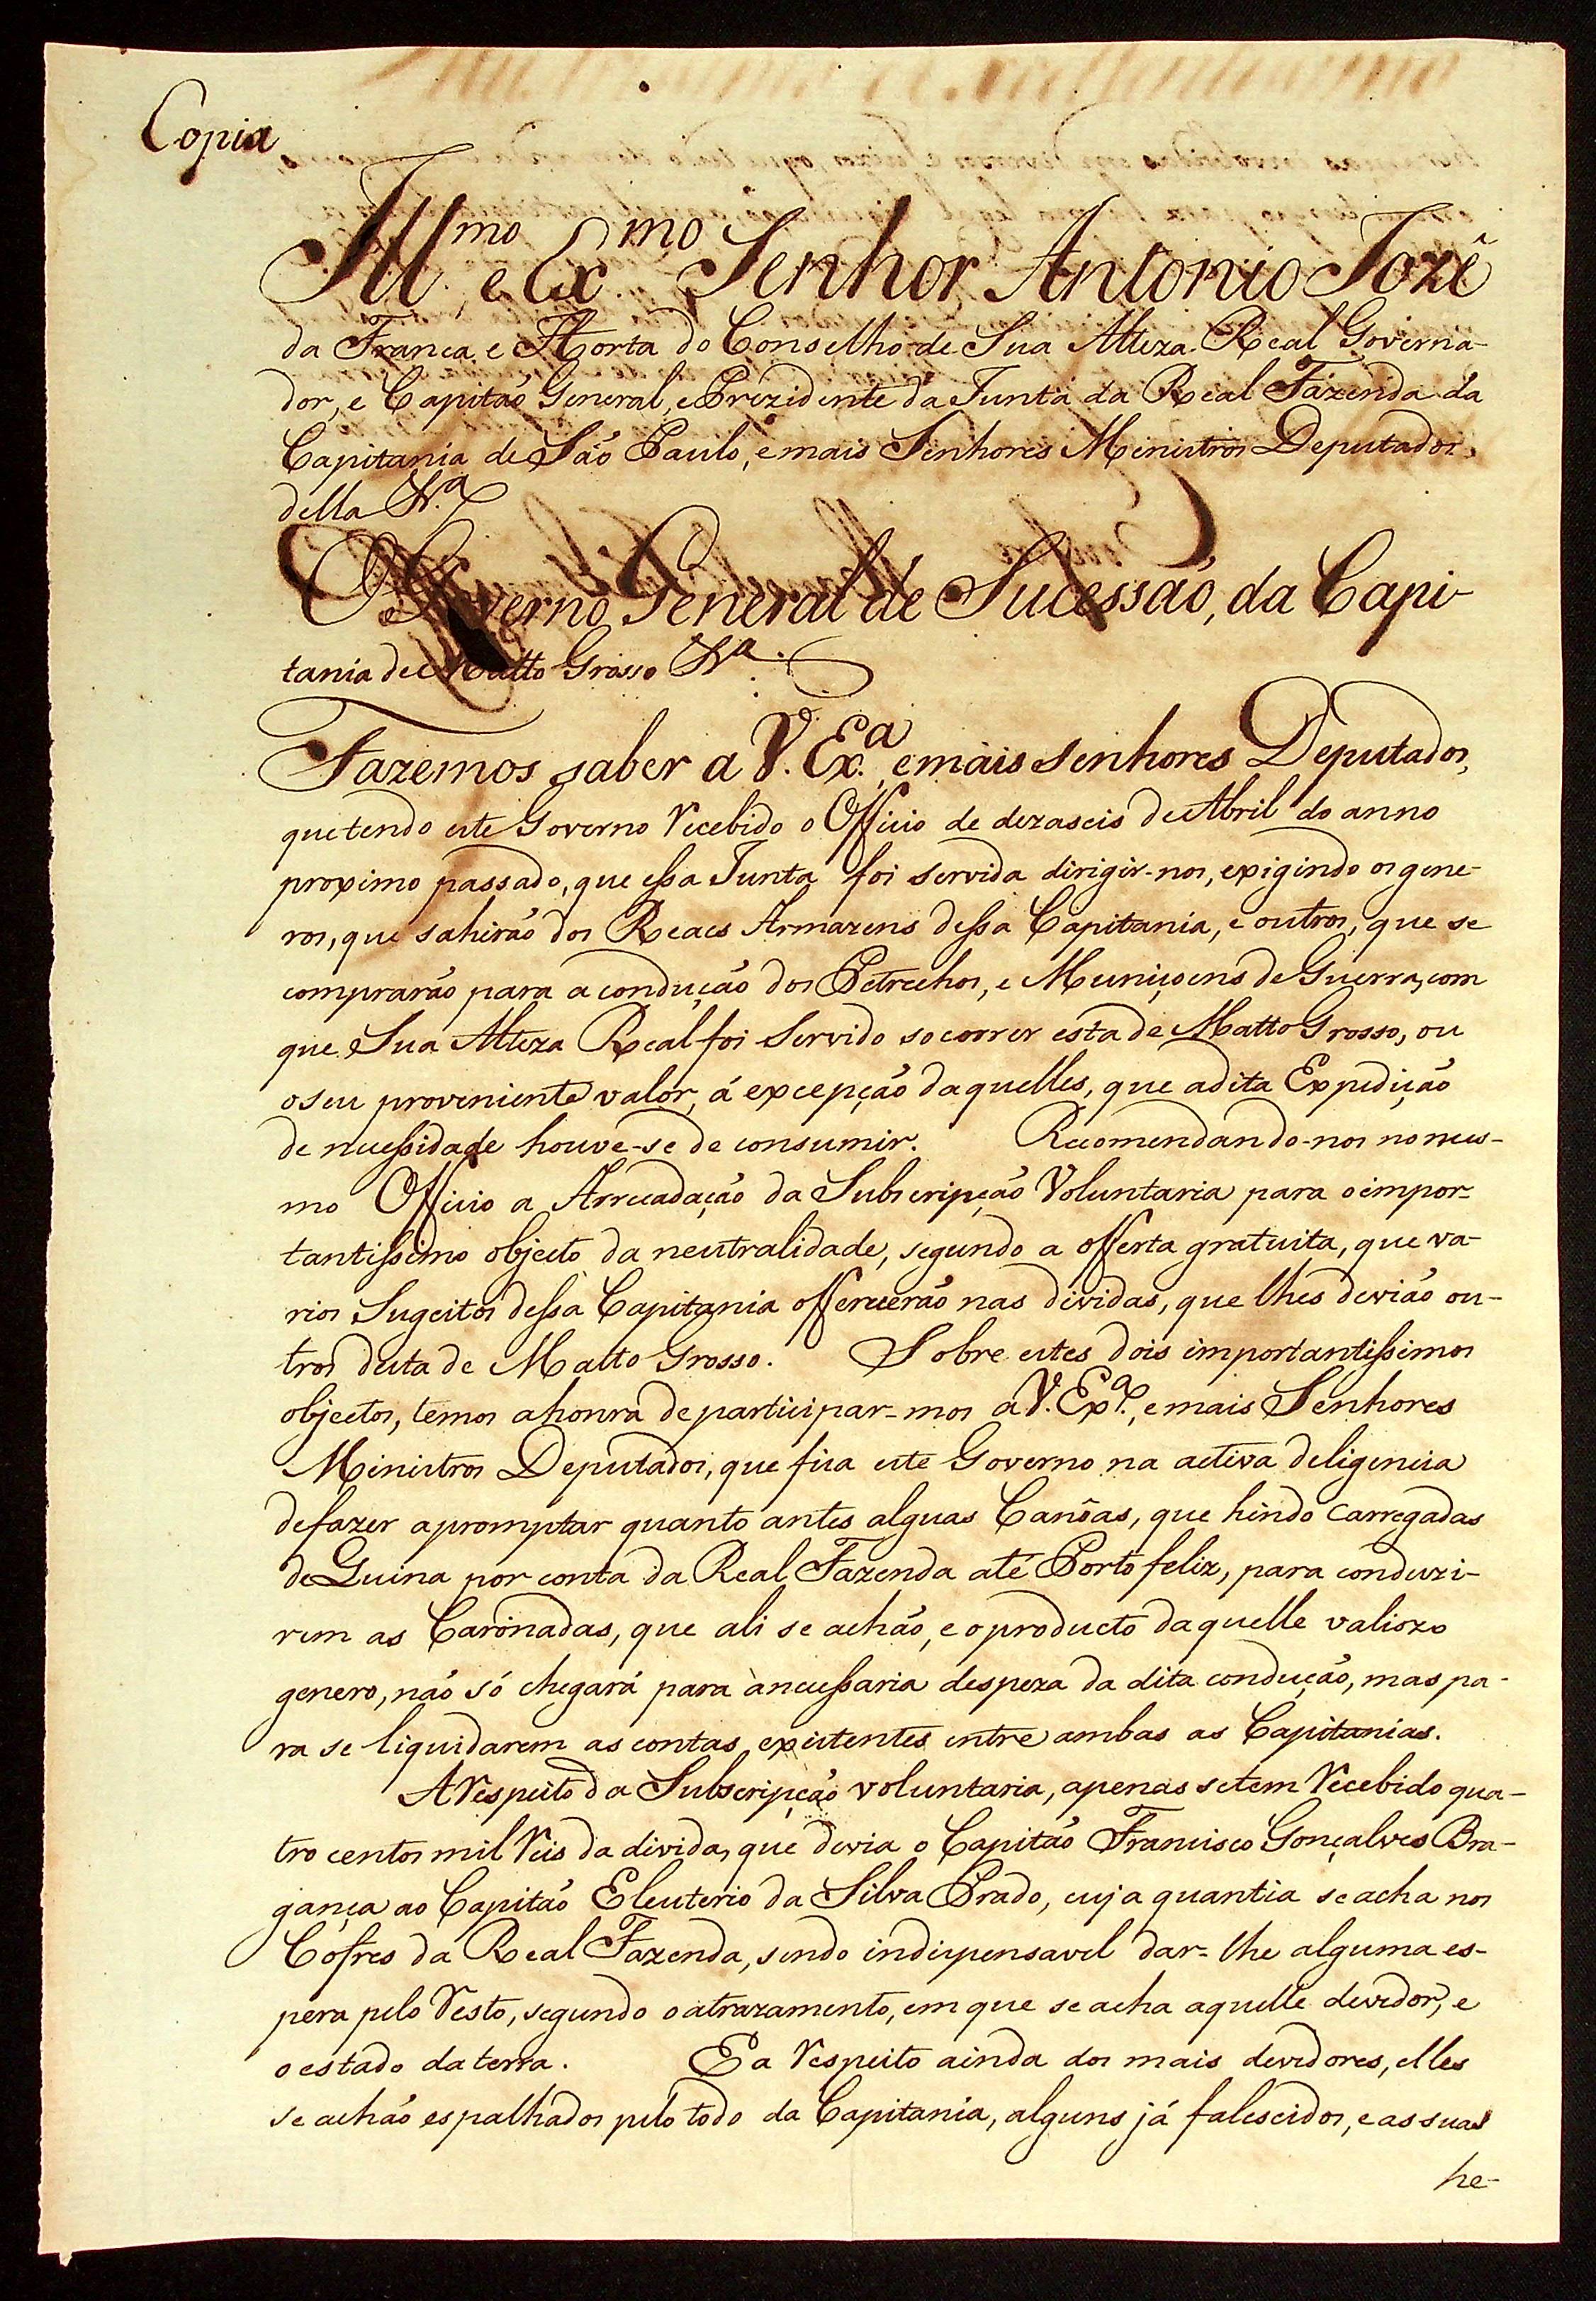 Copia
Ill.mo e Ex.mo Senhor Antonio Jozê
da Franca, e Horta do Conselho de Sua Alteza Real Governa-
dor, e Capitaõ General, e Prezidente da Junta da Real Fazenda da
Capitania de Saõ Paulo, e mais Senhores Ministros Deputados
della &.a
O Governo General de Sucessaõ, da Capi-
tania de Matto Grosso &.a
Fazemos saber a V. Ex.a, e mais Senhores Deputados,
que tendo este Governo recebido o Officio de dezaseis de Abril do anno
proximo passado, que essa Junta foi servida dirigir-nos, exigindo os gene-
ros, que sahiraõ dos Reaes Armazens dessa Capitania, e outros, que se
compraraõ para a conduçaõ dos Petrechos, e Muniçoens de Guerra, com
que Sua Alteza Real foi Servido socorrer esta de Matto Grosso, ou
o seu proveniente valor, á excepçaõ daquelles, que a dita Expediçaõ
de necessidade houve-se de consumir. Recomendando-nos no mes-
mo Officio a Arrecadaçaõ da Subscripçaõ Voluntaria para o impor-
tantissimo objecto da neutralidade, segundo a offerta gratuita, que va-
rios Sugeitos dessa Capitania offereceraõ nas dividas, que lhes deviaõ ou-
tros desta de Matto Grosso. Sobre estes dois importantissimos
objectos, temos a honra de participar-mos a V. Ex.a, e mais Senhores
Ministros Deputados, que fica este Governo na activa deligencia
de fazer apromptar quanto antes alguas Canôas, que hindo carregadas
de Quina por conta da Real Fazenda até Porto feliz, para conduzi-
rem as Caronadas, que ali se achaõ, e o producto daquelle valiozo
genero, naõ só chegará para à necessaria despeza da dita conduçaõ, mas pa-
ra se liquidarem as contas existentes entre ambas as Capitanias.
A respeito da Subscripçaõ voluntaria, apenas se tem recebido qua-
tro centos mil reis da divida, que devia o Capitaõ Francisco Gonçalves Bra-
gança ao Capitaõ Eleuterio da Silva Prado, cuja quantia se acha nos
Cofres da Real Fazenda, sendo indispensavel dar-lhe alguma es-
pera pelo resto, segundo o atrazamento, em que se acha aquelle devedor, e
o estado da terra. E a respeito ainda dos mais devedores, elles
se achaõ espalhados pelo todo da Capitania, alguns já falescidos, e as suas
he-